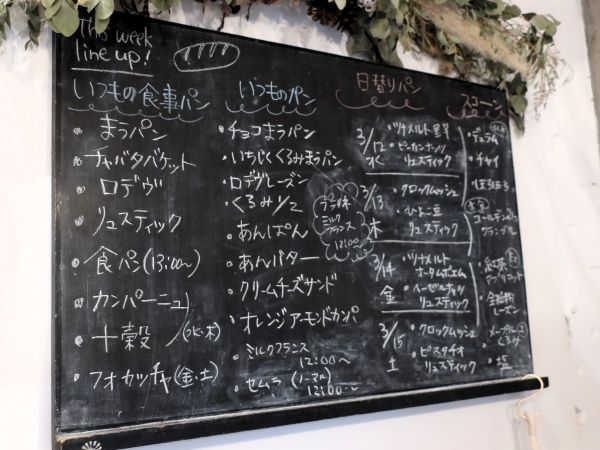 This week
line up!
いつもの食事パン
まうパン
チャバタバケット
ロデヴ
リュスティック
食パン(13:00〜)
カンパーニュ
十穀/(水・木)
フォカッチャ(金・土)
いつものパン
チョコまうパン
いちじくくるみまうパン
ロデヴレーズン
くるみ1/2
あんぱん
あんバター
クリームチーズサンド
オレンジアーモンドカンパ
ミルクフランス
12:00〜
セムラ(ノーマル)
12:00〜
ミルク
フランス
12:00
日替りパン
3/12
水
ツナメルト
ピーカンナッツ
リュスティック
3/13
木
クロックムッシュ
ひよこ豆
リュスティック
3/14
金
ツナメルト
オータムポエム
ヘーゼルナッツ
リュスティック
3/15
土
クロックムッシュ
ピスタチオ
リュスティック
スコーン
デュラム
チャイ
ほろほろ
紅茶
全粒粉
レーズン
メープル
くるみ
塩